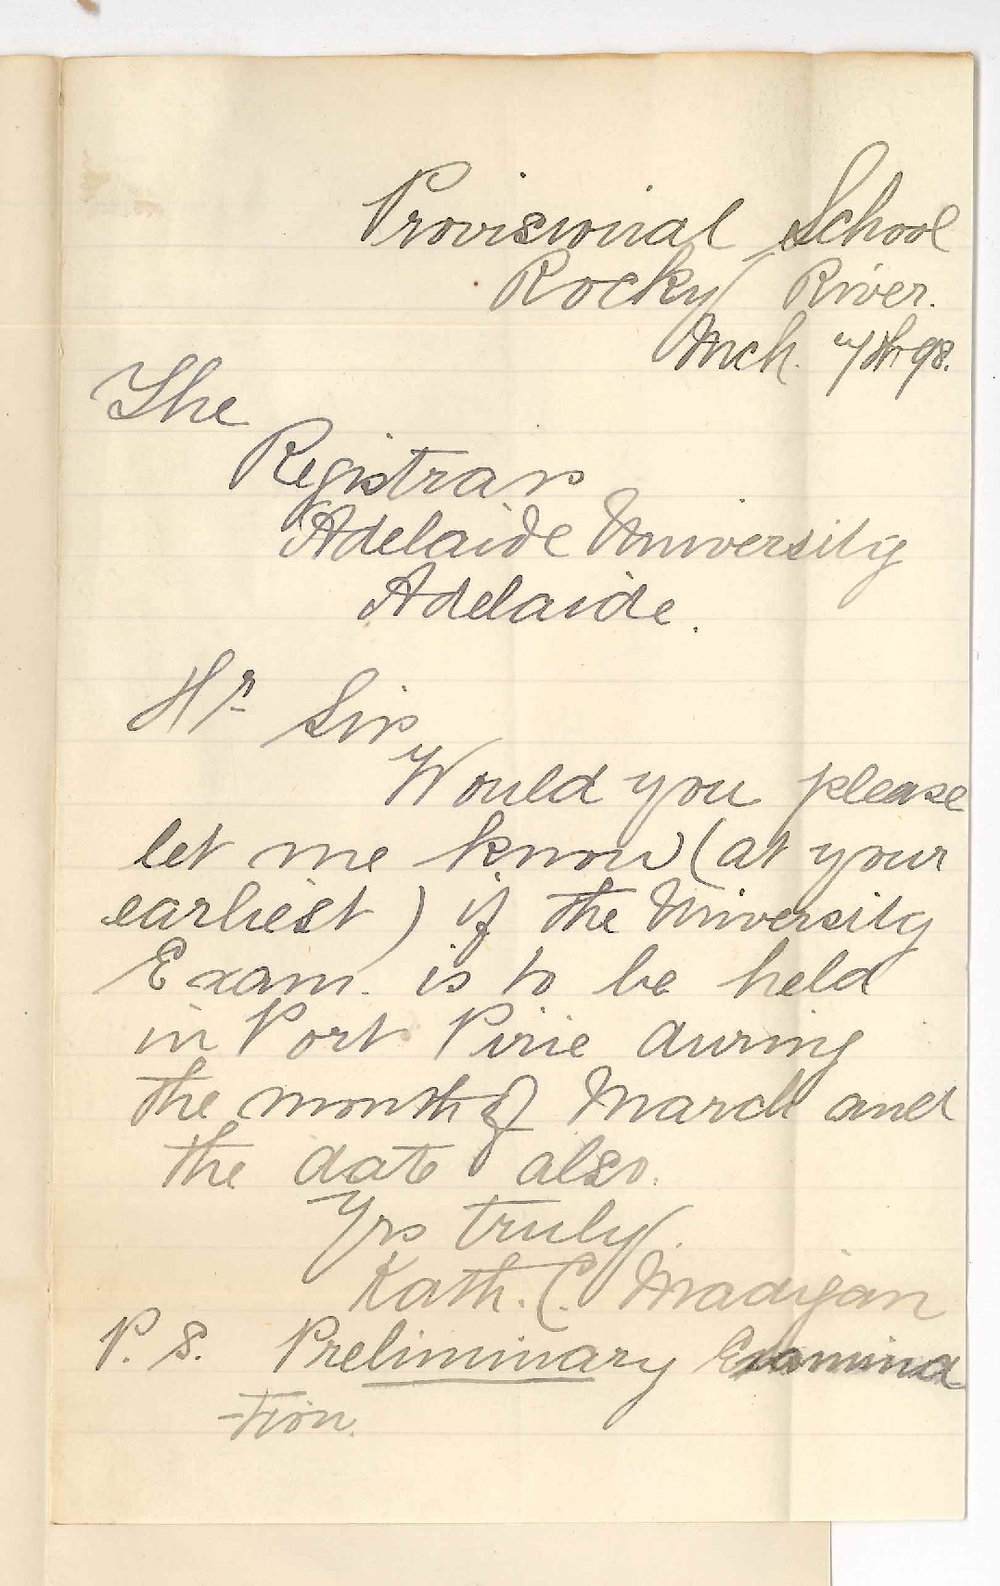 Provisional School
Rocky River.
Mch. 7th 98.
The
Registrar
Adelaide University
Adelaide.
Hr Sir
Would you please
let me know (at your
earliest) if the University
Exam. is to be held
in Port Pirie during
the month of March and
the date also.
Yrs truly
Kath. C. Madigan
P. S. Preliminary Examina
-tion.